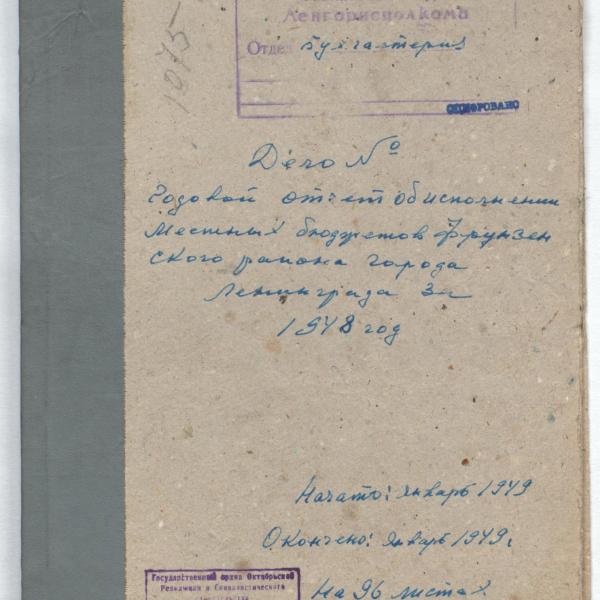 Ленгорисполкома
Отдел бухгалтерия
1075-
ОЦИФРОВАНО
Дело №
Годовой отчет об исполнении
местных бюджетов Фрунзен
ского района города
Ленинграда за
1948 год
Начато: январь 1949
Окончено: январь 1949г
На 96 листах
Государственный архив Октябрьской
Революции и Социалистического
строительства